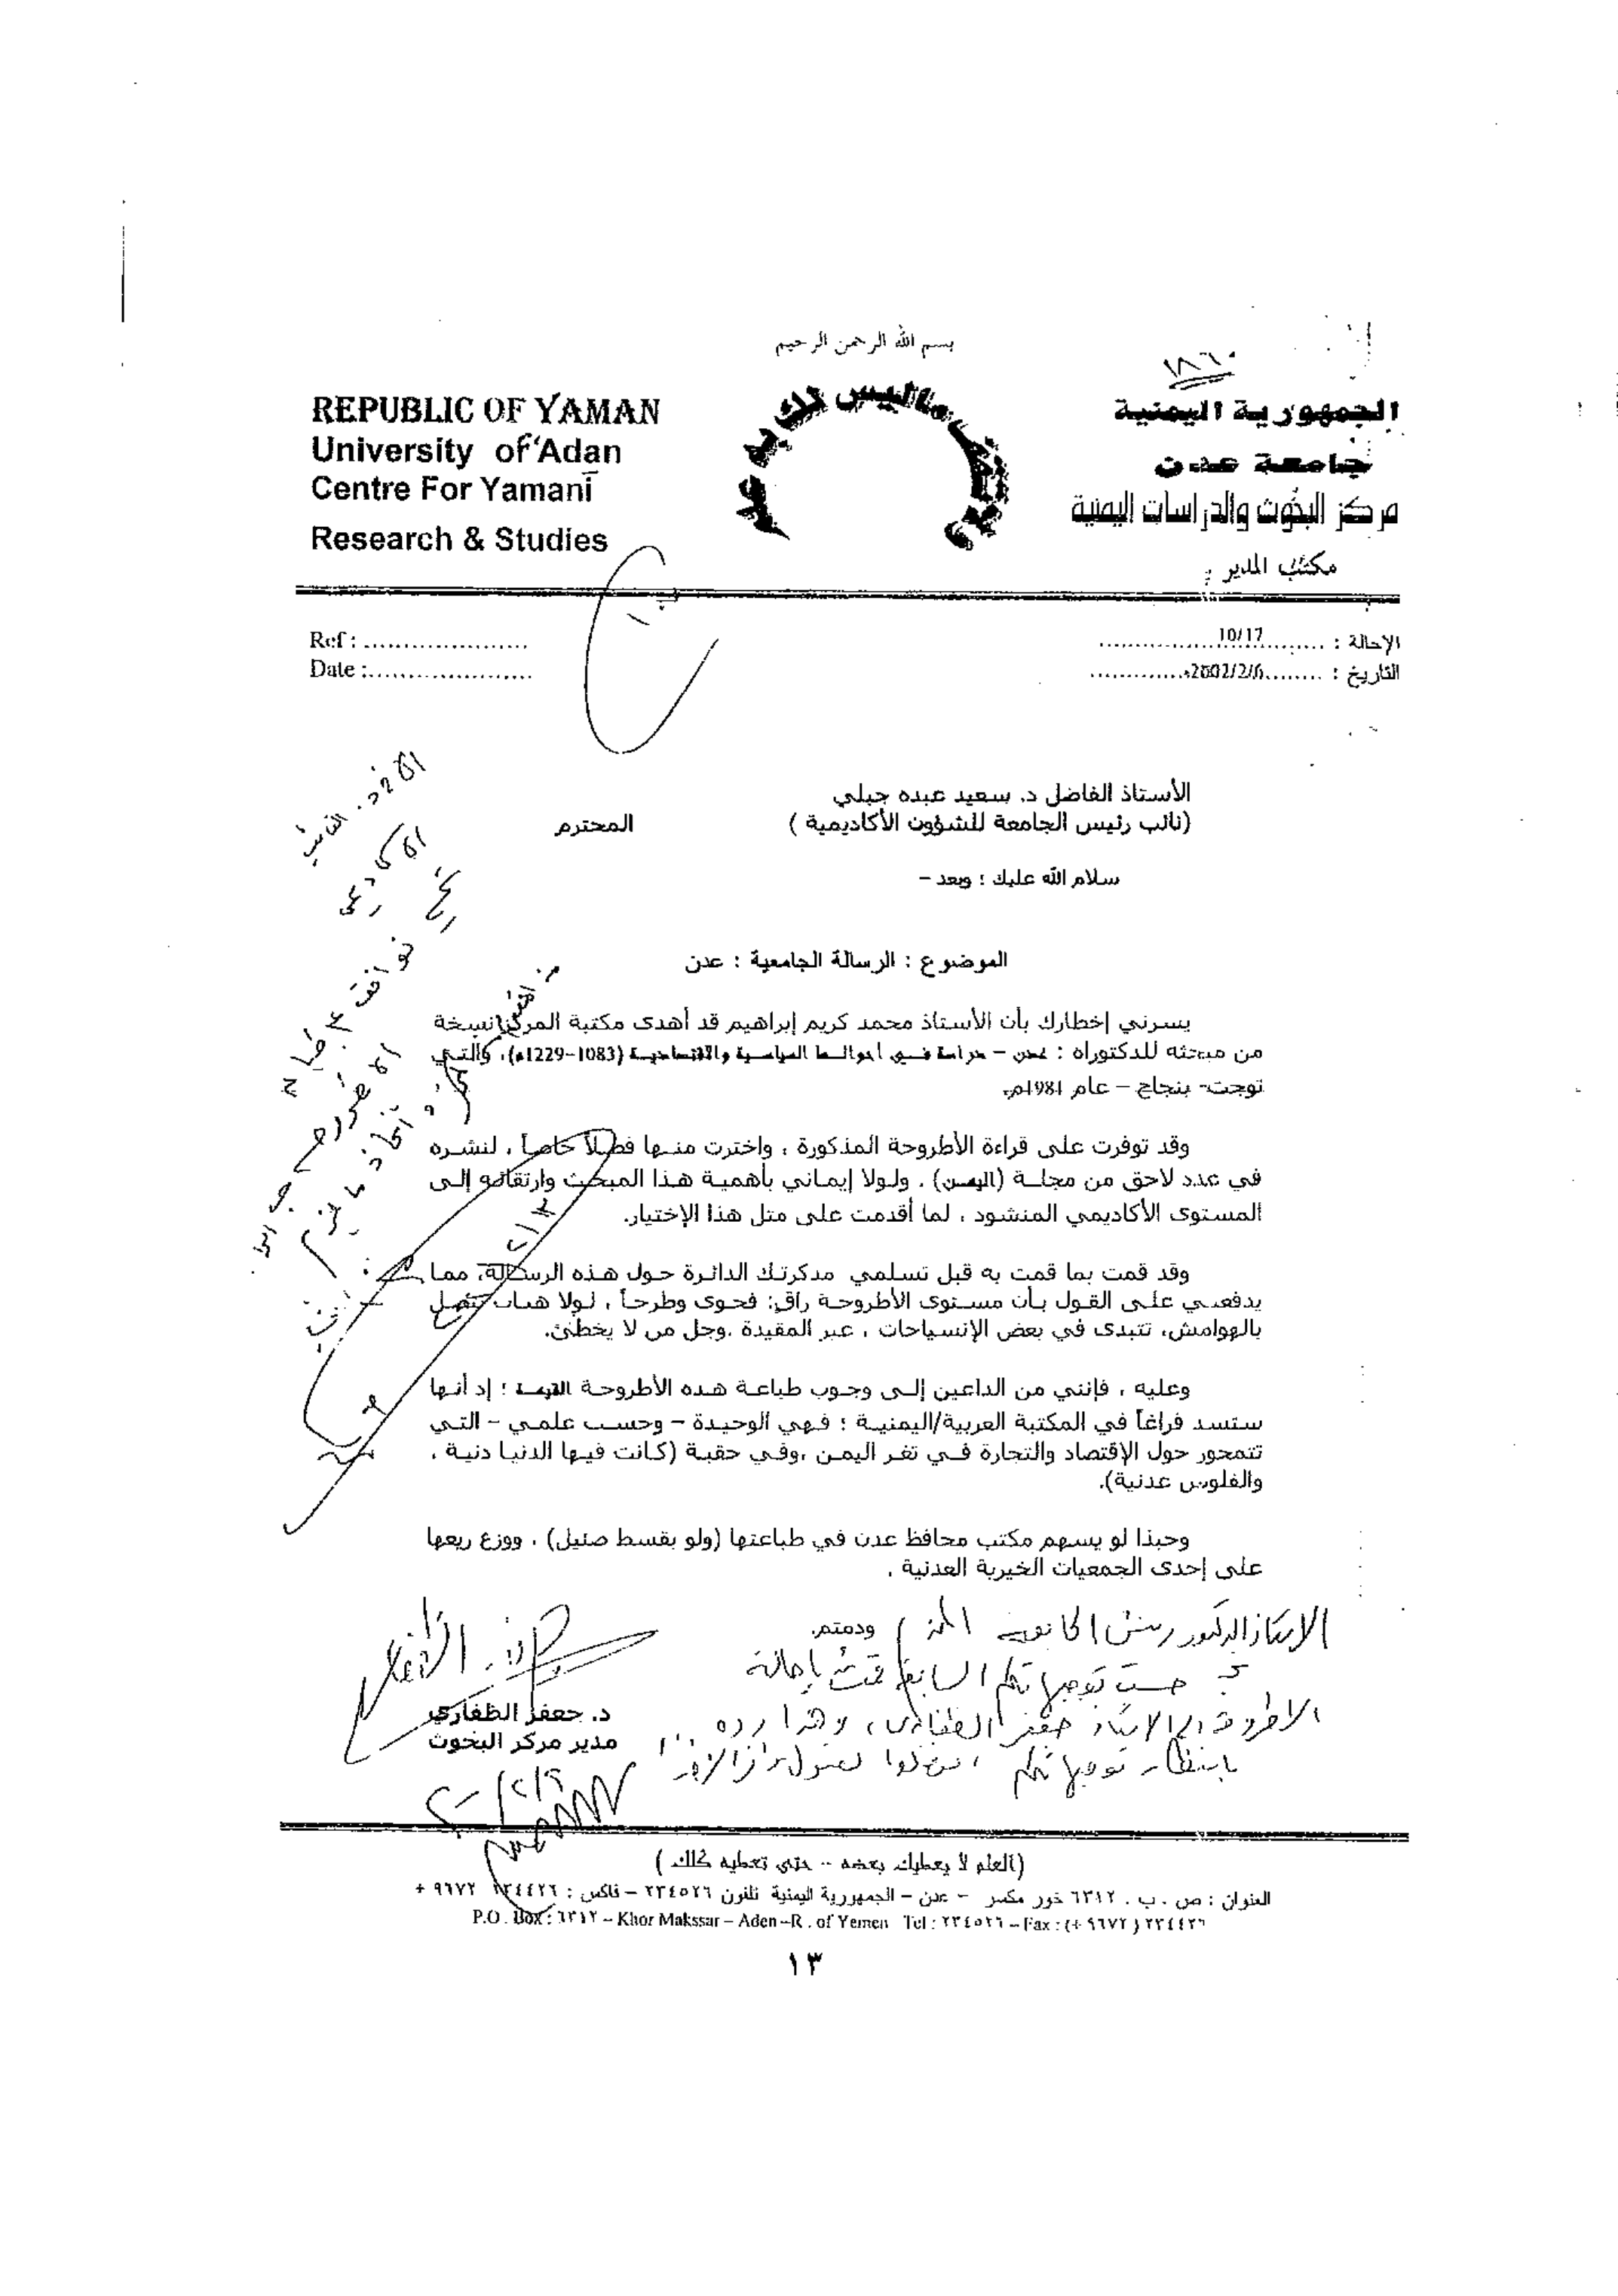 بسم الله الرحمن الرحيم
١٨٦٠
REPUBLIC OF YAMAN
University of 'Adan
Centre For Yamanī
Research & Studies
الجمهورية اليمنية
جامعة عدن
مركز البحوث والدراسات اليمنية
مكتب المدير :
Ref : ......................
Date :......................
الإحالة : ........10/17........
التاريخ : ........2002/2/6م........
الأستاذ الفاضل د. سعيد عبده جبلي
(نائب رئيس الجامعة للشؤون الأكاديمية ) المحترم
سلام الله عليك ؛ وبعد –
الموضوع : الرسالة الجامعية : عدن
يسرني إخطارك بأن الأستاذ محمد كريم إبراهيم قد أهدى مكتبة المركز نسخة
من مبحثه للدكتوراه : عدن – دراسة في أحوالها السياسية والاقتصادية (1083–1229م)، والتي
توجت- بنجاح – عام 1981م.
وقد توفرت على قراءة الأطروحة المذكورة ، واخترت منها فصلاً خاصاً ، لنشره
في عدد لاحق من مجلة (اليمن) . ولولا إيماني بأهمية هذا المبحث وارتقائه إلى
المستوى الأكاديمي المنشود ، لما أقدمت على مثل هذا الإختيار.
وقد قمت بما قمت به قبل تسلمي مذكرتك الدائرة حول هذه الرسالة، مما
يدفعني على القول بأن مستوى الأطروحة راق: فحوى وطرحاً ، لولا هنات تتصل
بالهوامش، تتبدى في بعض الإنسياحات ، عبر المقيدة .وجل من لا يخطئ.
وعليه ، فإنني من الداعين إلى وجوب طباعة هذه الأطروحة القيمة ؛ إذ أنها
ستسد فراغاً في المكتبة العربية/اليمنية ؛ فهي الوحيدة – وحسب علمي – التي
تتمحور حول الإقتصاد والتجارة في ثغر اليمن ،وفي حقبة (كانت فيها الدنيا دنية ،
والفلوس عدنية).
وحبذا لو يسهم مكتب محافظ عدن في طباعتها (ولو بقسط ضئيل) ، ووزع ريعها
على إحدى الجمعيات الخيرية العدنية .
ودمتم.
الاستاذ الدكتور رئيس الجامعة المحترم
حسب توجيهاتكم السابقة قمت بإحالة
الاطروحة إلى الاستاذ جعفر الظفاري، وهذا رده
بانتظار توجيهاتكم
د. جعفر الظفاري
مدير مركز البحوث
(العلم لا يعطيك بعضه -- حتى تعطيه كلك )
العنوان : ص . ب . ٦٣١٢ خور مكسر – عدن – الجمهورية اليمنية تلفون ٢٣٤٥٢٦ – فاكس : ٢٣٤٤٢٦ ٩٦٧٢ +
P.O . Box : ٦٣١٢ – Khor Makssar – Aden –R . of Yemen Tel : ٢٣٤٥٢٦ – Fax : (+ ٩٦٧٢ ) ٢٣٤٤٢٦
١٣